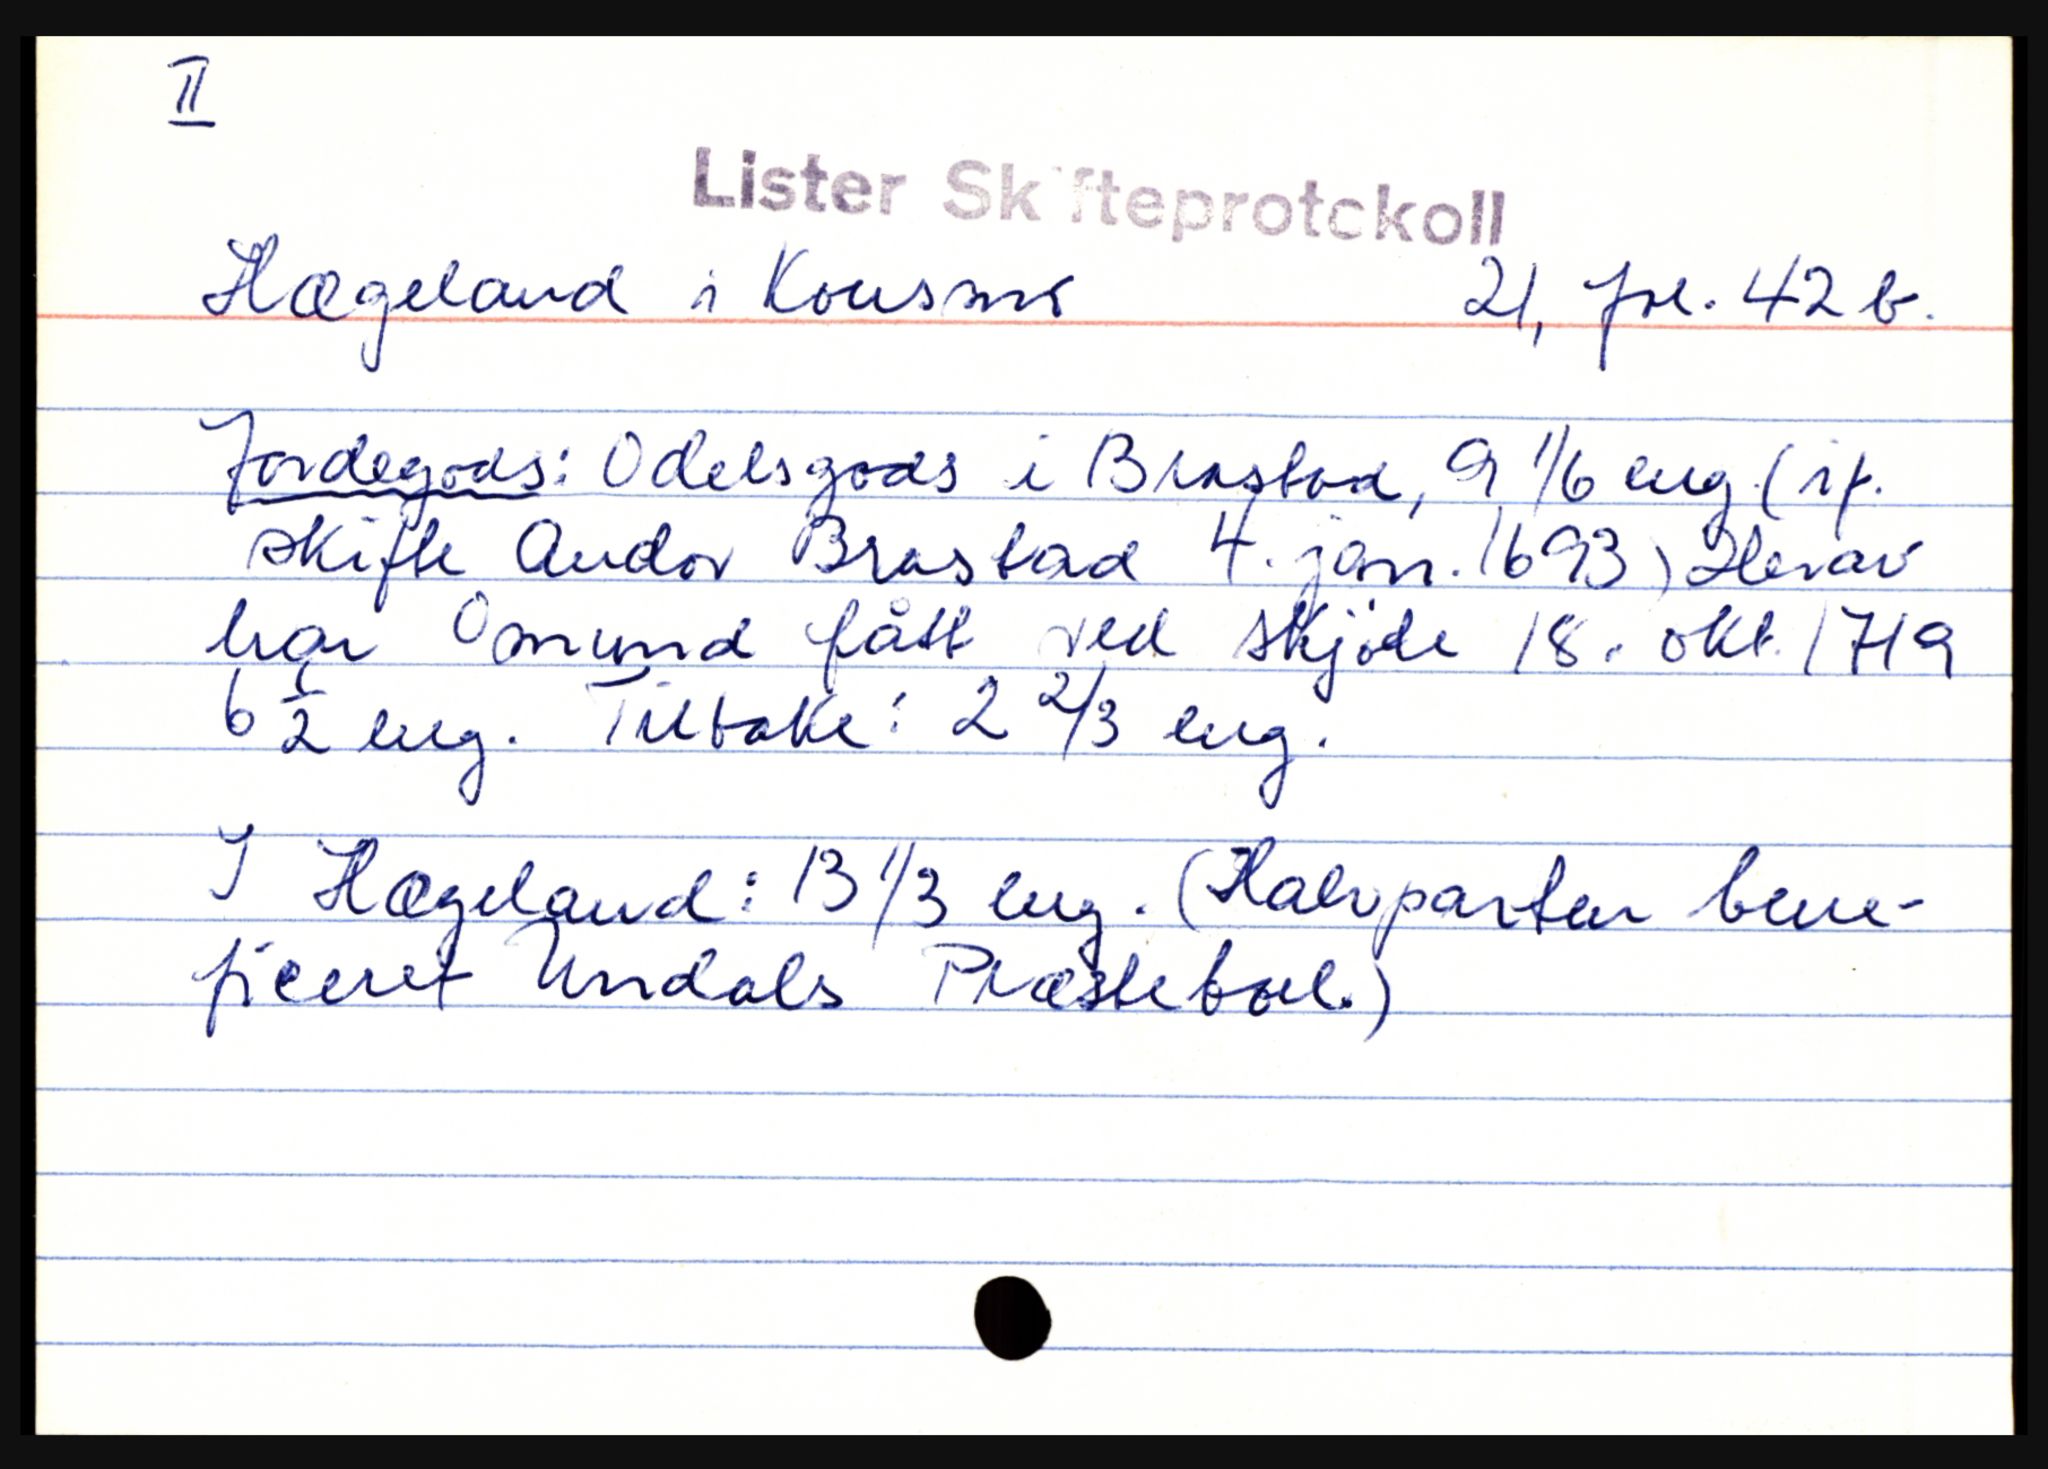 II
Lister Skifteprotokoll
Hægeland i Konsmo 21, fol. 42 b.
Jordegods: Odelsgods i Brastad, 9 1/6 eng. (if.
skifte Andor Brastad 4. jan. 1693) Herav
har Omund fått ved skjöde 18. okt. 1719
6 1/2 eng. Tilbake: 2 2/3 eng.
I Hægeland: 13 1/3 eng. (Halvparten bene-
ficeret Undals Præstebol.)